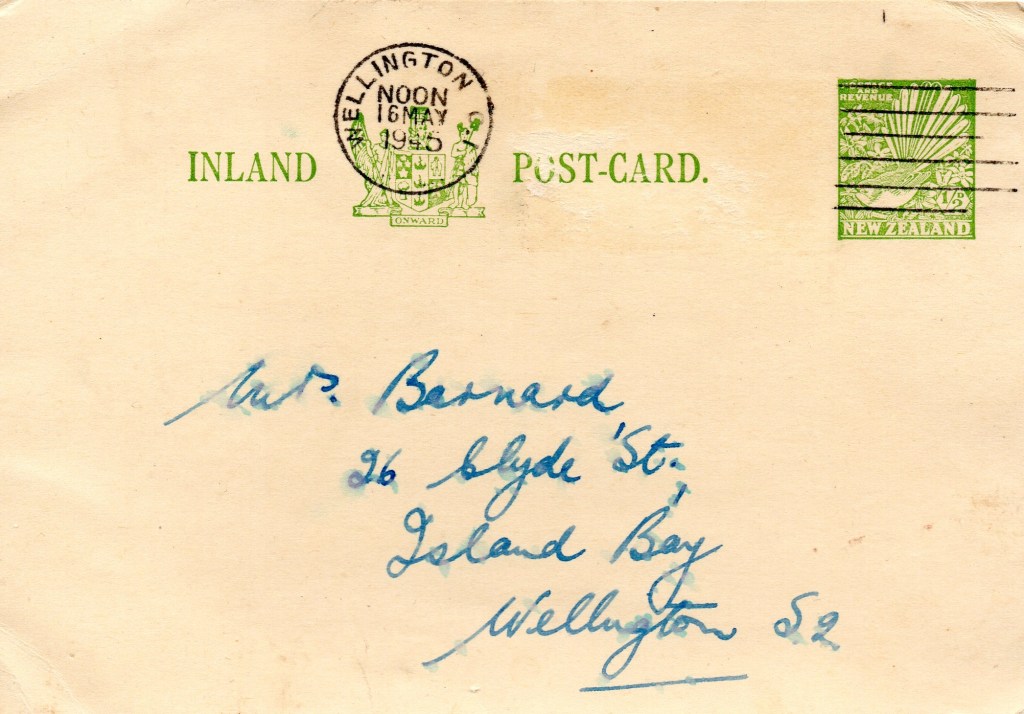 WELLINGTON C.1
NOON
16 MAY
1945
INLAND POST-CARD.
ONWARD
POSTAGE
AND
REVENUE
1/2D
NEW ZEALAND
Mrs. Barnard,
26 Clyde St.,
Island Bay
Wellington S2